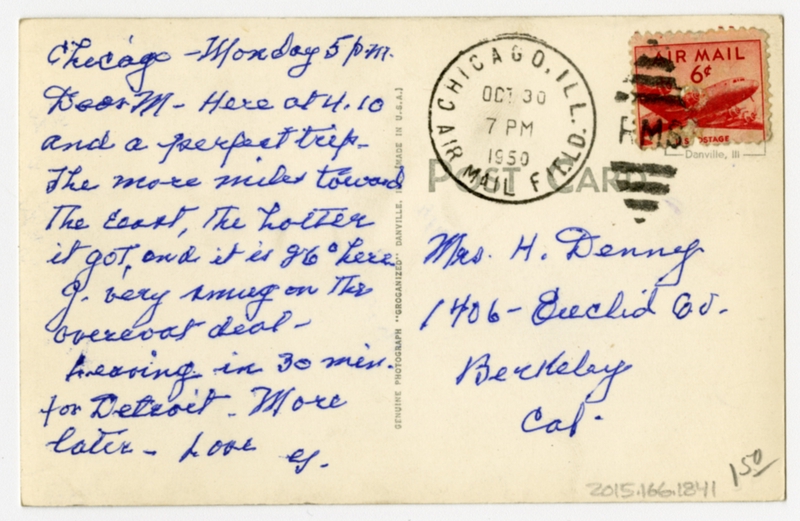 Chicago - Monday 5 p.m.
Dear M - Here at 4.10
and a perfect trip.
The more miles toward
the East, the hotter
it got, and it is 86° here.
G. very smug on the
overcoat deal -
Leaving in 30 min.
for Detroit - More
later - Love
G.
GENUINE PHOTOGRAPH "GROGANIZED" DANVILLE, [MADE IN U.S.A.]
CHICAGO, ILL.
OCT 30
7 PM
1950
AIR MAIL FIELD.
AIR MAIL
6¢
POSTAGE
RMS
Danville, Ill
POST CARD
Mrs. H. Denney
1406 - Euclid Av.
Berkeley
Cal.
1.50
2015.166.1841